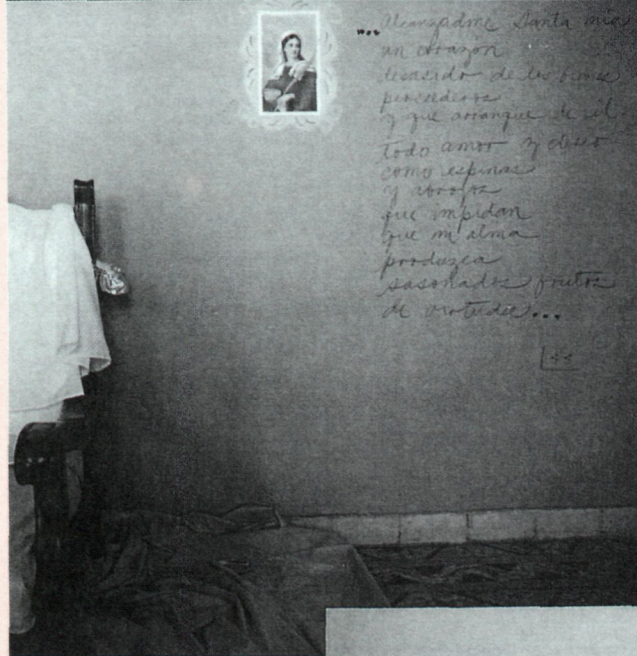 ... Alcanzadme Santa mia
un corazon
desasido de los bienes
perecederos
y que arranque de el
todo amor y deseo
como espinas
y abrojos
que impidan
que mi alma
produzca
sasonados frutos
de virtudes...